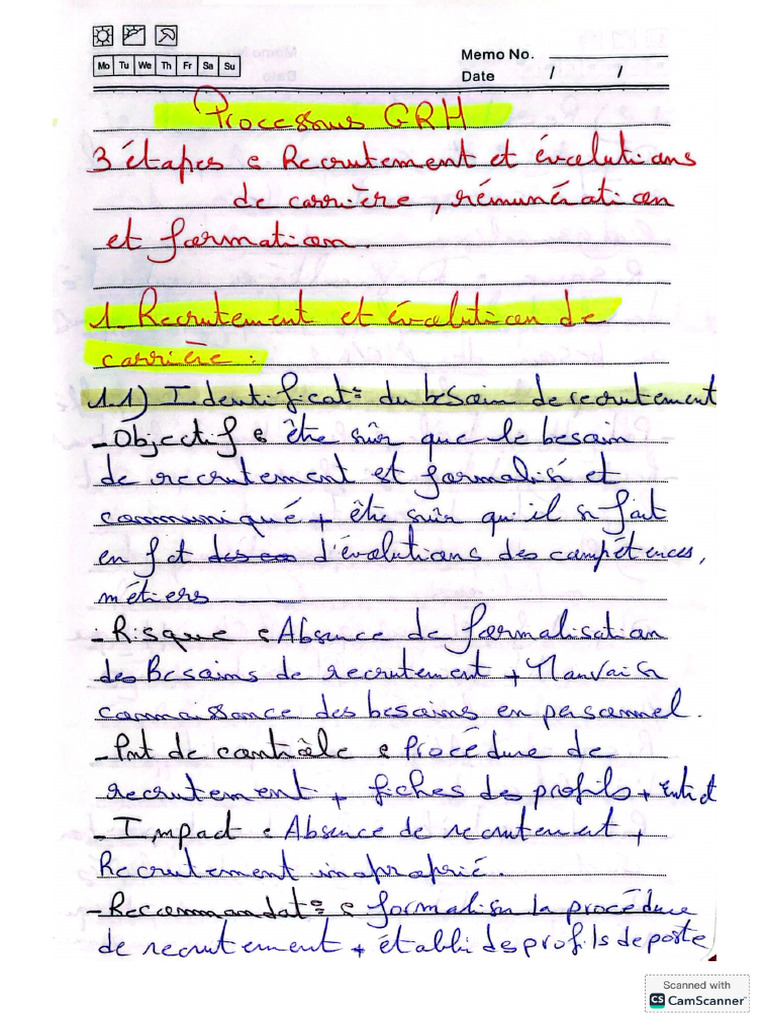 Memo No.
Mo Tu We Th Fr Sa Su
Date / /
Processus GRH
3 étapes : Recrutement et évolutions
de carrière, rémunération
et formation.
1. Recrutement et évolution de
carrière :
1.1) Identificat° du besoin de recrutement
- Objectif : être sûr que le besoin
de recrutement est formalisé et
communiqué + être sûr qu'il se fait
en fct d'évolutions des compétences,
métiers
- Risque : Absence de formalisation
des Besoins de recrutement + Mauvaise
connaissance des besoins en personnel.
- Pnt de contrôle : Procédure de
recrutement + fiches des profils +
- Impact : Absence de recrutement +
Recrutement inaproprié.
- Recommandat° : formaliser la procédure
de recrutement + établi des profils de poste
Scanned with
CS CamScanner